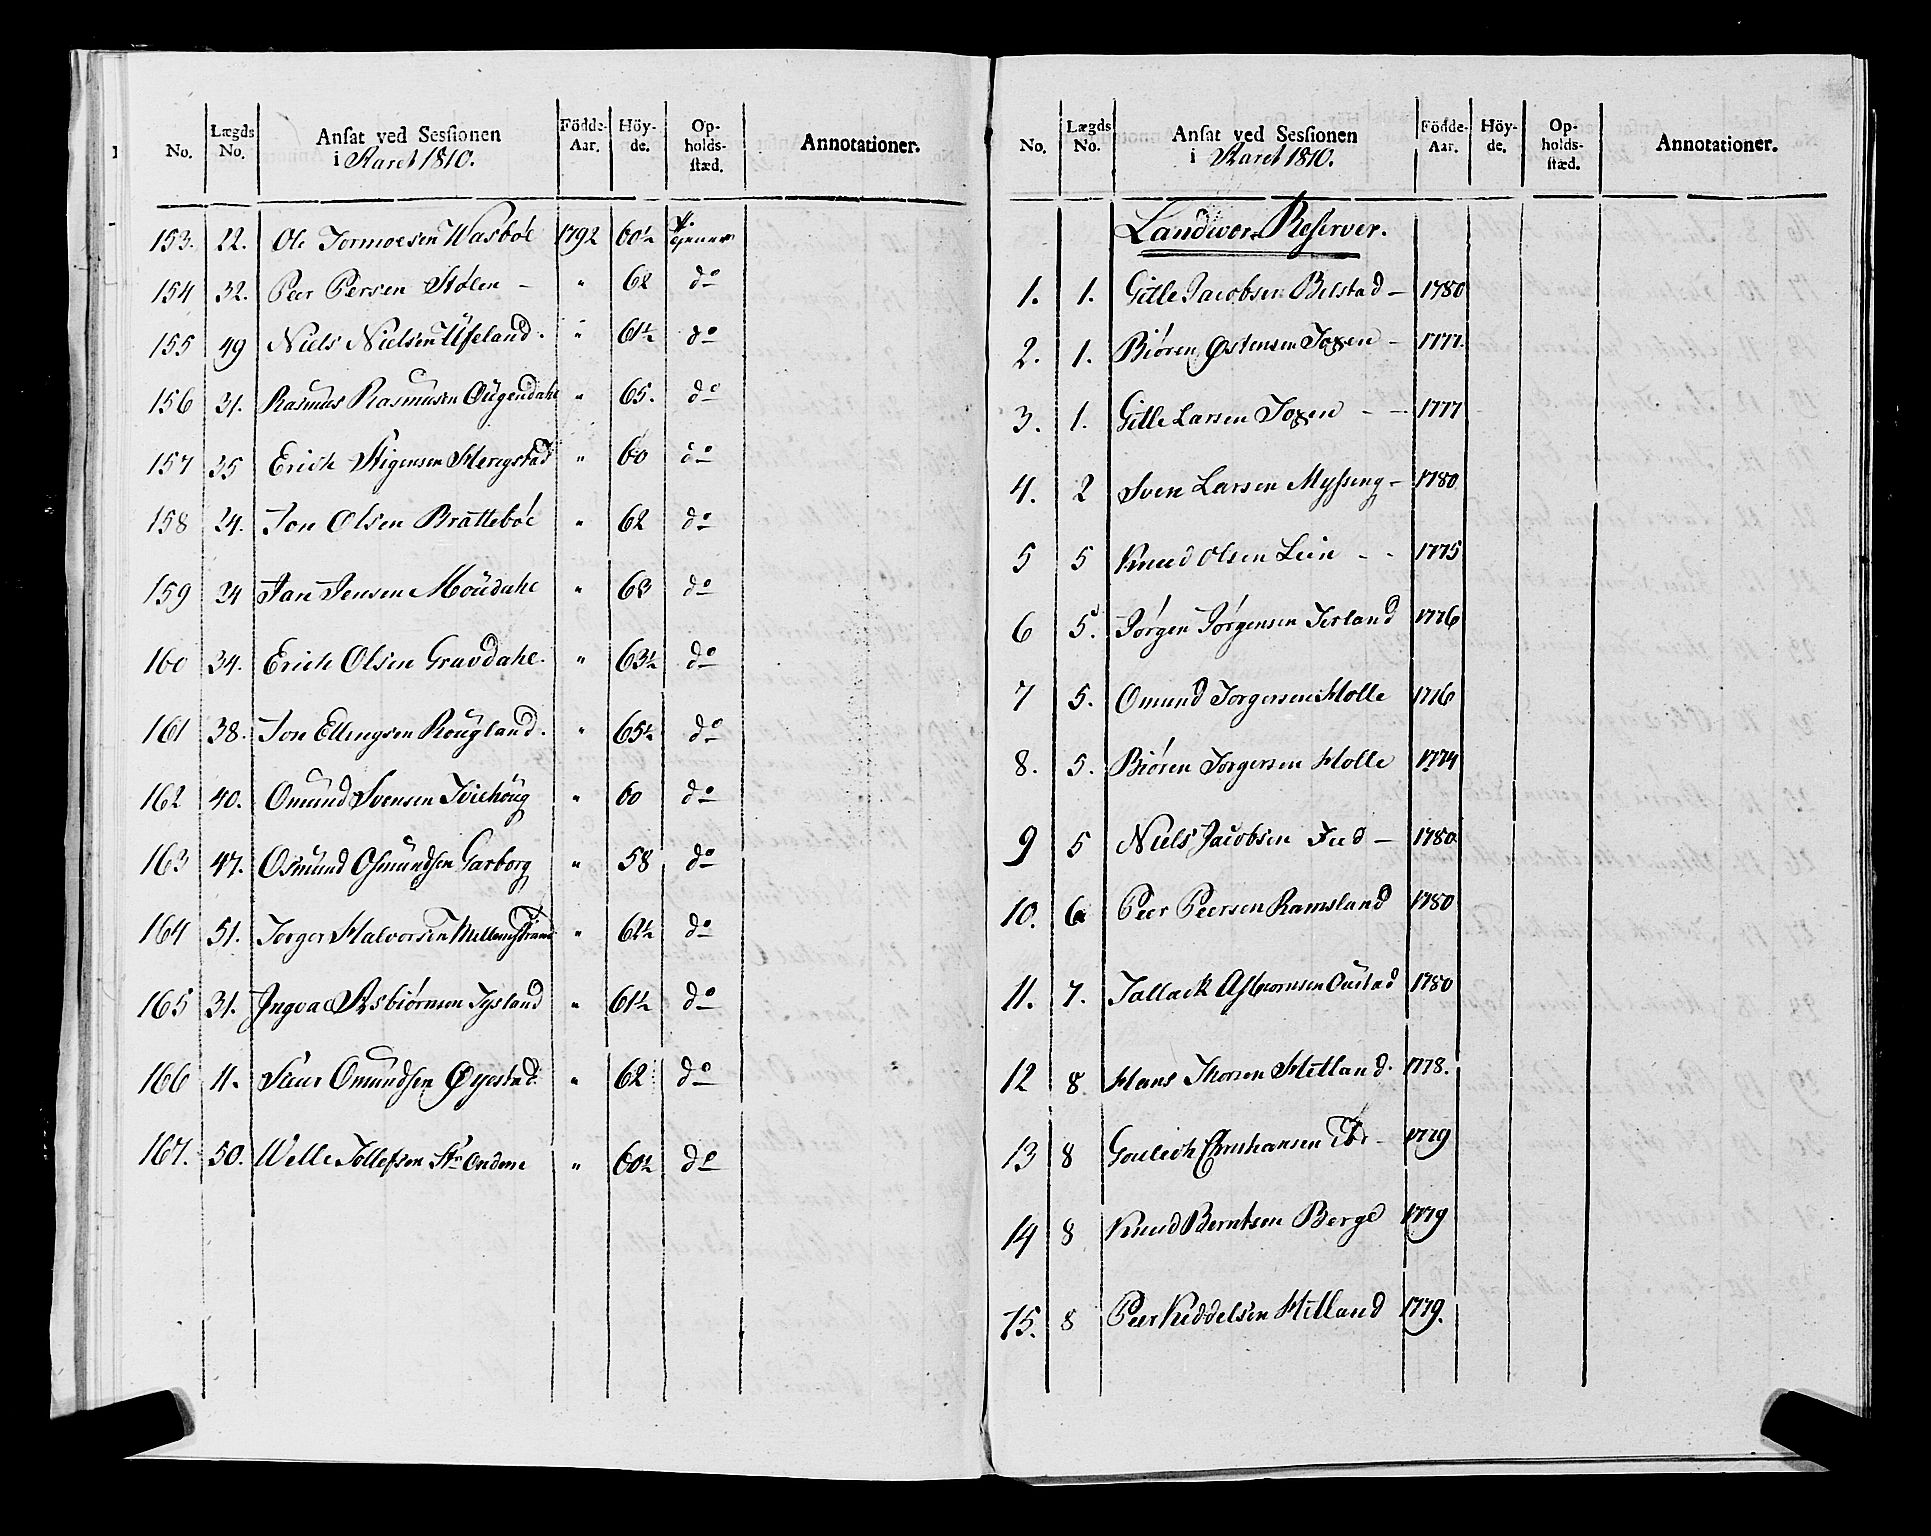 No. Lægds No. Ansat ved Sessionen i Aaret 1810. Födde-Aar. Höy-de. Op-holds-stæd. Annotationer.
153. 22. Ole Tormoesen Wasböe 1792 60½ Hjemme
154 32. Peer Persen Stølen - " 62 do
155 49 Niels Nielsen Ufeland. " 61½ do
156 31. Rasmus Rasmusen Ougendahl " 65. do
157 35 Erich Stigensen Herigstad " 60 do
158 24. Jon Olsen Bratteböe " 62 do
159 24 Jan Jensen Moüdahl " 63 do
160 34. Erich Olsen Gravdahl. " 63½ do
161 38. Jon Ellingsen Rougland. " 65½ do
162 40. Omund Svensen Tviehoug " 60 do
163 47. Osmund Osmundsen Garborg " 58 do
164 51. Torger Halvorsen Mellemstrand " 62½ do
165 31. Ingval Asbiörnsen Tysland " 61½ do
166 11. Omundsen Øyestad. " 62 do
167. 50. Welle Tollefsen Str Ondene " 60½ do
No. Lægds No. Ansat ved Sessionen i Aaret 1810. Födde-Aar. Höy-de. Op-holds-stæd. Annotationer.
Landvern Reserver.
1. 1. Gitle Jacobsen Belstad - 1780
2. 1. Biören Østensen Joxen - 1777.
3. 1. Gitle Larsen Joxen - - 1777
4. 2 Sven Larsen Myssing - 1780
5 5 Knud Olsen Lein - - 1775
6 5. Jörgen Jörgensen Jerland 1776
7 5. Omund Torgersen Holle 1776
8. 5. Biören Torgersen Holle 1774
9 5 Niels Jacobsen Feed - 1780
10. 6 Peer Peersen Ramsland 1780
11. 7. Tallack Asbiörnsen Oustad 1780
12 8. Hans Thorsen Hetland. 1778.
13 8 Goulich Christiansen - 1779
14 8 Knud Berntsen Berge 1779
15. 8 Peer Kiddelsen Hetland 1779.